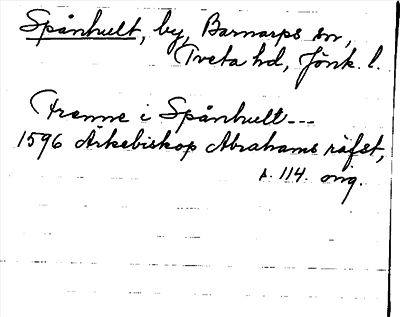 Spånhult, by, Barnarps sn,
Tveta hd, Jönk. l.
Frenne i Spånhult ---
1596 Ärkebiskop Abrahams räfst,
s. 114. orig.